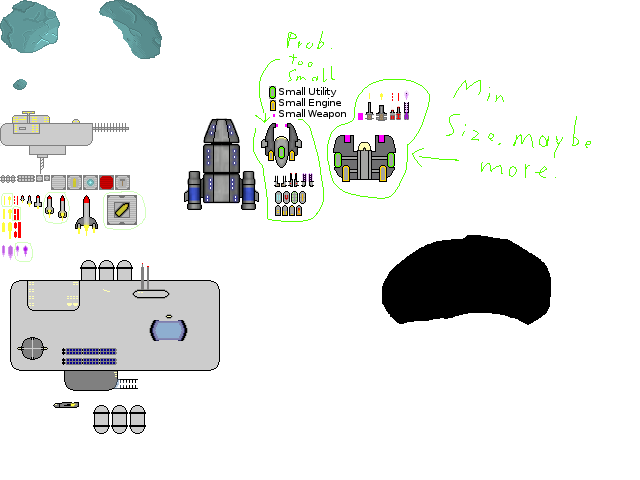 Prob.
too
Small
Small Utility
Small Engine
Small Weapon
Min
Size, maybe
more.